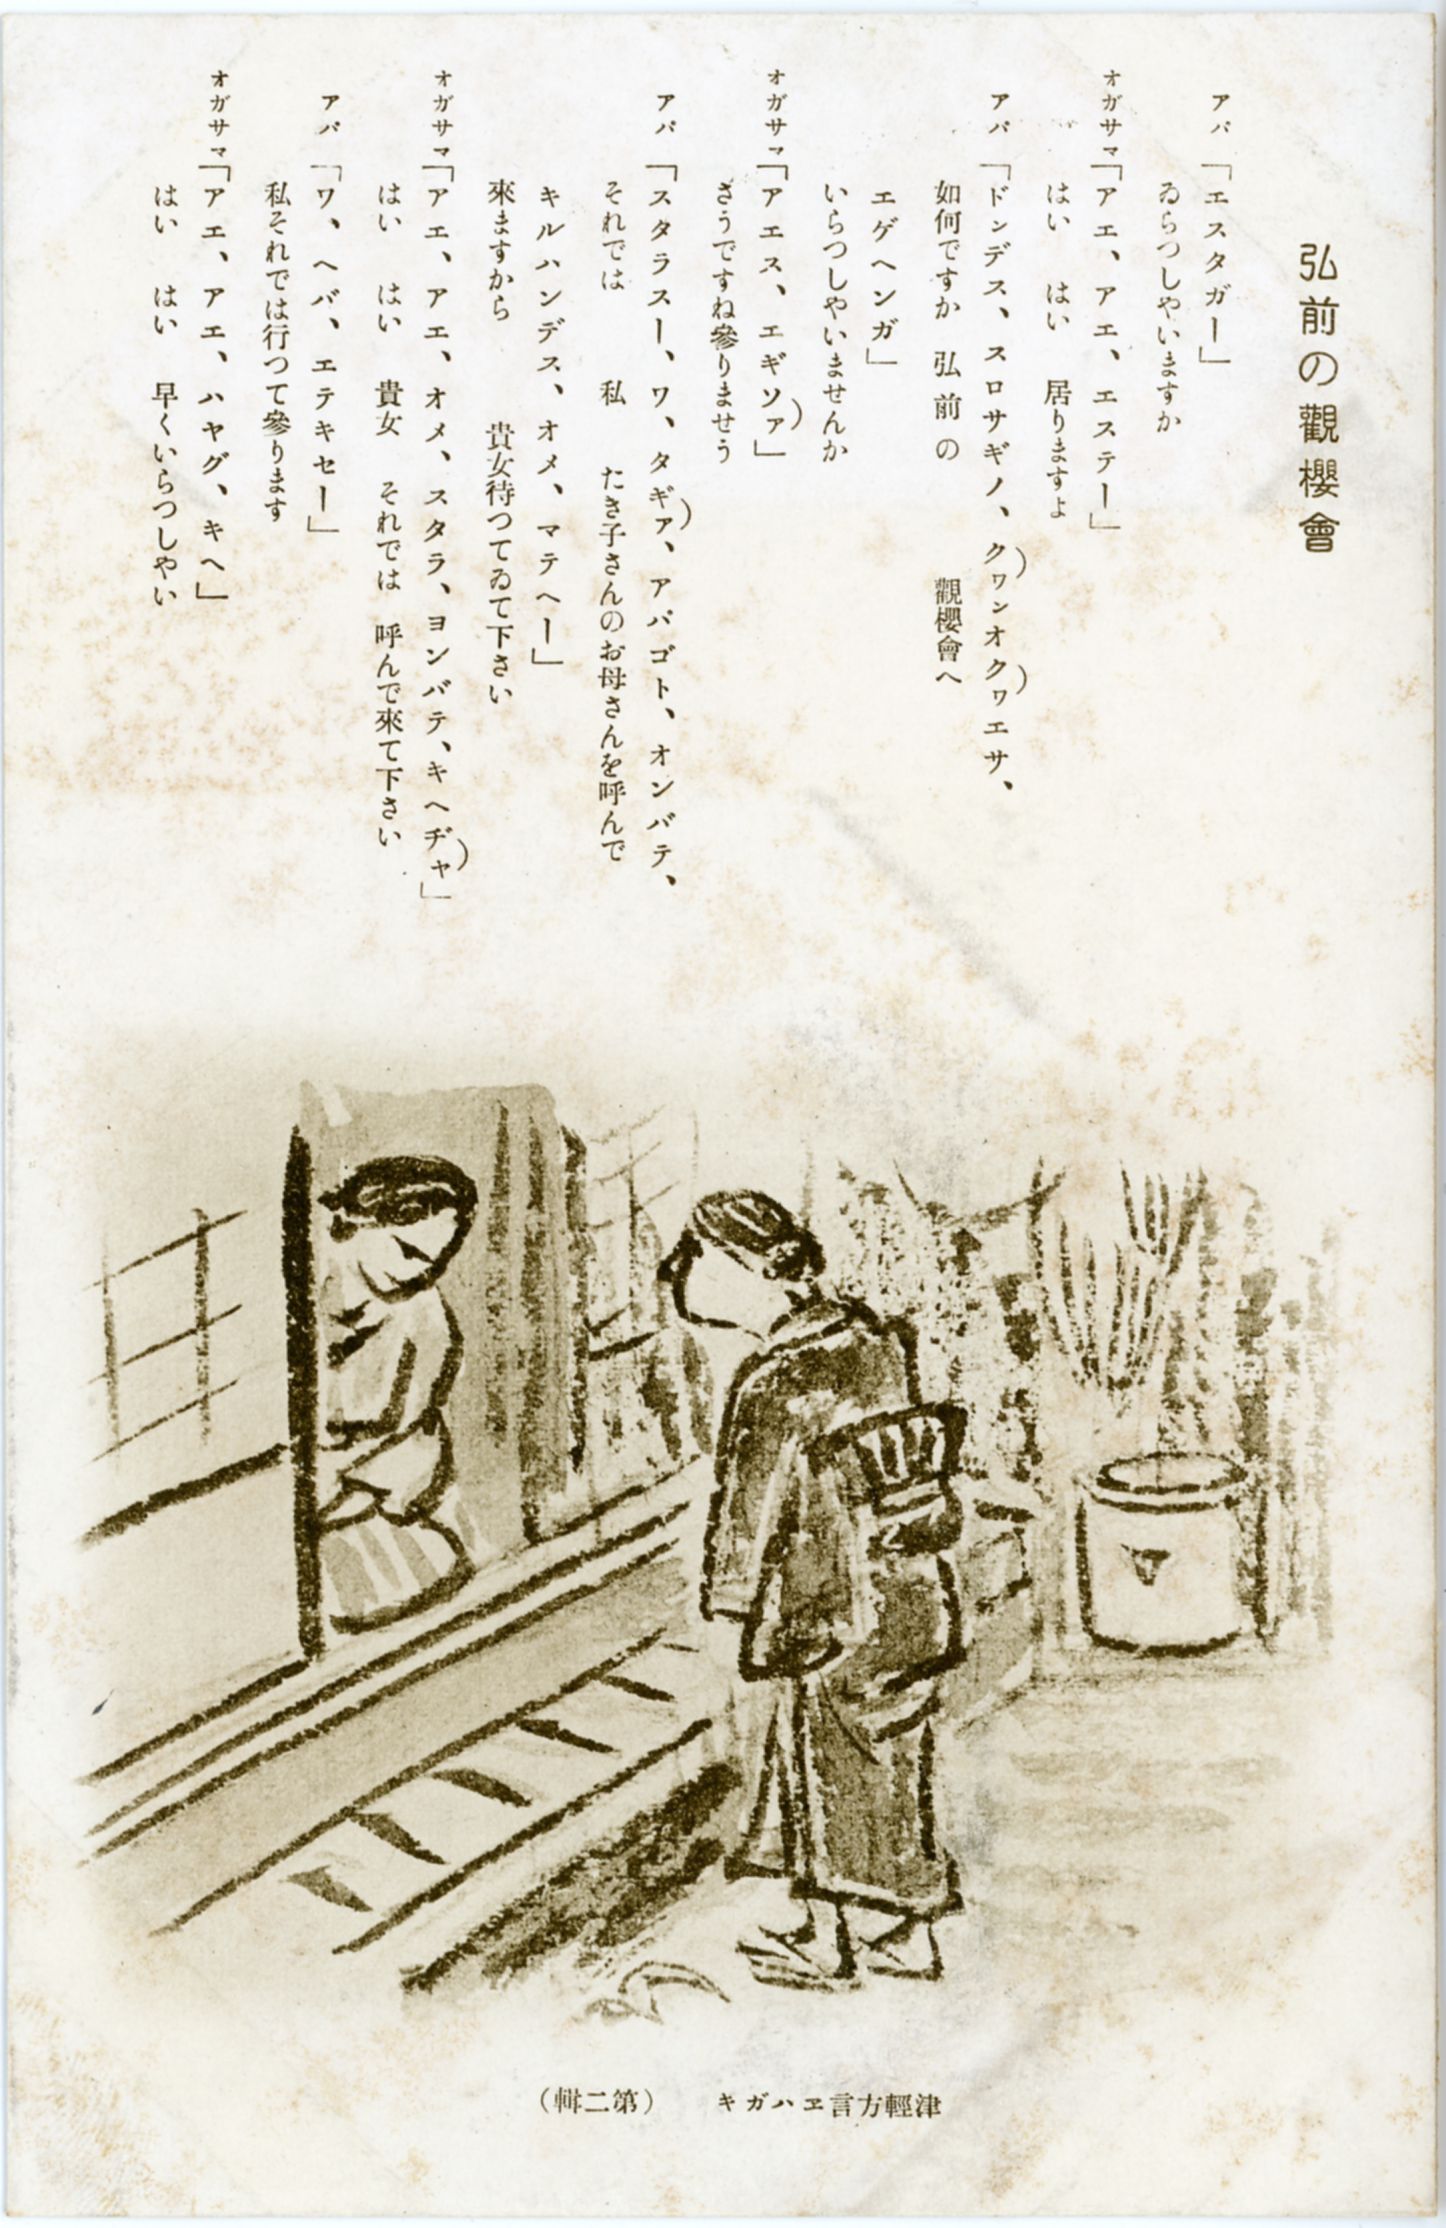 弘前の觀櫻會
アバ「エスタガー」
ゐらつしやいますか
オガサマ「アエ、アエ、エステー」
はい はい 居りますよ
アバ「ドンデス、スロサギノ、クヮンオクヮエサ、
如何ですか 弘前の 觀櫻會へ
エゲヘンガ」
いらつしやいませんか
オガサマ「アエス、エギソァ」
さうですね參りませう
アバ「スタラスー、ワ、タギァ、アバゴト、オンバテ、
それでは 私 たき子さんのお母さんを呼んで
キルハンデス、オメ、マテヘー」
來ますから 貴女待つてゐて下さい
オガサマ「アエ、アエ、オメ、スタラ、ヨンバテ、キヘヂャ」
はい はい 貴女 それでは 呼んで來て下さい
アバ「ワ、ヘバ、エテキセー」
私それでは行つて參ります
オガサマ「アエ、アエ、ハヤグ、キヘ」
はい はい 早くいらつしやい
津輕方言ヱハガキ (第二輯)